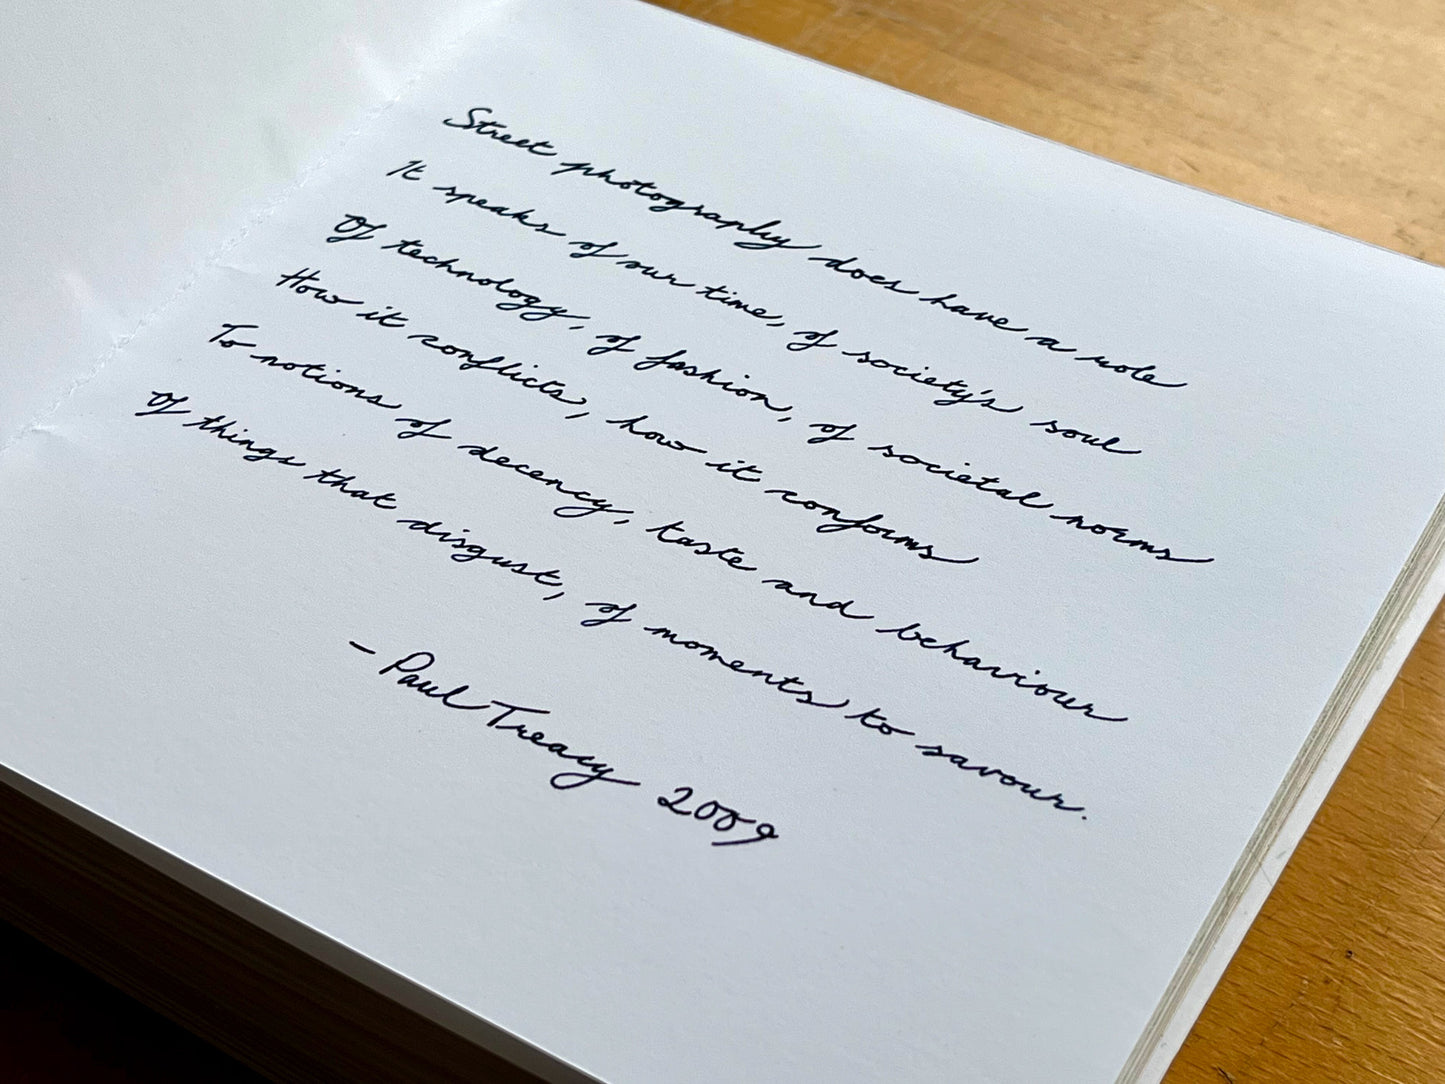 Street photography does have a role
It speaks of our time, of society's soul
Of technology, of fashion, of societal norms
How it conflicts, how it conforms
To notions of decency, taste and behaviour
Of things that disgust, of moments to savour.
- Paul Treacy 2009